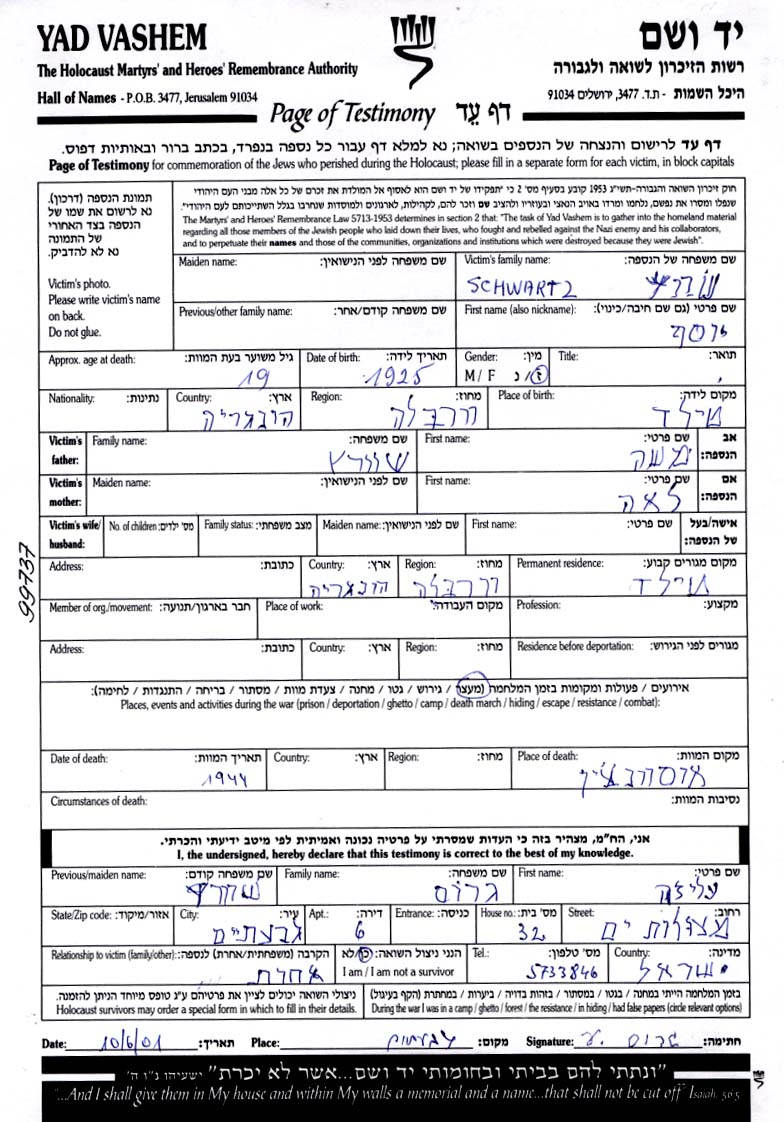 YAD VASHEM
יד ושם
The Holocaust Martyrs' and Heroes' Remembrance Authority
רשות הזיכרון לשואה ולגבורה
Hall of Names - P.O.B. 3477, Jerusalem 91034
היכל השמות - ת.ד. 3477, ירושלים 91034
Page of Testimony דף עד
דף עד לרישום והנצחה של הנספים בשואה; נא למלא דף עבור כל נספה בנפרד, בכתב ברור ובאותיות דפוס.
Page of Testimony for commemoration of the Jews who perished during the Holocaust; please fill in a separate form for each victim, in block capitals
תמונת הנספה (דרכון).
נא לרשום את שמו של
הנספה בצד האחורי
של התמונה
נא לא להדביק.
Victim's photo.
Please write victim's name
on back.
Do not glue.
חוק זיכרון השואה והגבורה-תשי"ג 1953 קובע בסעיף מס' 2 כי "תפקידו של יד ושם הוא לאסוף אל המולדת את זכרם של כל אלה מבני העם היהודי
שנפלו ומסרו את נפשם, נלחמו ומרדו באויב הנאצי ובעוזריו ולהציב שם וזכר להם, לקהילות, לארגונים ולמוסדות שנחרבו בגלל השתייכותם לעם היהודי".
The Martyrs' and Heroes' Remembrance Law 5713-1953 determines in section 2 that: "The task of Yad Vashem is to gather into the homeland material
regarding all those members of the Jewish people who laid down their lives, who fought and rebelled against the Nazi enemy and his collaborators,
and to perpetuate their names and those of the communities, organizations and institutions which were destroyed because they were Jewish".
Maiden name: שם משפחה לפני הנישואין:
Victim's family name: שם משפחה של הנספה:
SCHWARTZ שוורץ
Previous/other family name: שם משפחה קודם/אחר:
First name (also nickname): שם פרטי (גם שם חיבה/כינוי):
יוסף
Approx. age at death: גיל משוער בעת המוות:
19
Date of birth: תאריך לידה:
1925
Gender: מין:
M / F ז/נ
Title: תואר:
Nationality: נתינות:
Country: ארץ:
הונגריה
Region: מחוז:
Place of birth: מקום לידה:
Victim's father:
Family name: שם משפחה:
שוורץ
First name: שם פרטי:
משה
אב הנספה:
Victim's mother:
Maiden name: שם לפני הנישואין:
First name: שם פרטי:
לאה
אם הנספה:
Victim's wife/ husband:
No. of children: מס' ילדים:
Family status: מצב משפחתי:
Maiden name: שם לפני הנישואין:
First name: שם פרטי:
אישה/בעל של הנספה:
Address: כתובת:
Country: ארץ:
הונגריה
Region: מחוז:
Permanent residence: מקום מגורים קבוע:
99737
Member of org./movement: חבר בארגון/תנועה:
Place of work: מקום העבודה:
Profession: מקצוע:
Address: כתובת:
Country: ארץ:
Region: מחוז:
Residence before deportation: מגורים לפני הגירוש:
אירועים / פעולות ומקומות בזמן המלחמה (מעצר / גירוש / גטו / מחנה / צעדת מוות / מסתור / בריחה / התנגדות / לחימה):
Places, events and activities during the war (prison / deportation / ghetto / camp / death march / hiding / escape / resistance / combat):
Date of death: תאריך המוות:
1944
Country: ארץ:
Region: מחוז:
Place of death: מקום המוות:
Circumstances of death: נסיבות המוות:
אני, הח"מ, מצהיר בזה כי העדות שמסרתי על פרטיה נכונה ואמיתית לפי מיטב ידיעתי והכרתי.
I, the undersigned, hereby declare that this testimony is correct to the best of my knowledge.
Previous/maiden name: שם משפחה קודם:
שוורץ
Family name: שם משפחה:
גרוס
First name: שם פרטי:
עליזה
State/Zip code: אזור/מיקוד:
City: עיר:
גבעתיים
Apt.: דירה:
6
Entrance: כניסה:
House no.: מס' בית:
32
Street: רחוב:
מצולות ים
Relationship to victim (family/other): הקרבה (משפחתית/אחרת) לנספה:
אחות
הנני ניצול השואה: כן/לא
I am / I am not a survivor
Tel.: מס' טלפון:
5733846
Country: מדינה:
ישראל
ניצולי השואה יכולים לציין את פרטיהם ע"ג טופס מיוחד הניתן להזמנה.
Holocaust survivors may order a special form in which to fill in their details.
בזמן המלחמה הייתי במחנה / בגטו / במסתור / בזהות בדויה / ביערות / במחתרת (הקף בעיגול)
During the war I was in a camp / ghetto / forest / the resistance / in hiding / had false papers (circle relevant options)
Date: 10/6/01 תאריך:
Place גבעתיים מקום:
Signature: גרוס ע. חתימה:
"ונתתי להם בביתי ובחומותי יד ושם...אשר לא יכרת" ישעיהו נ"ו ה'
"...And I shall give them in My house and within My walls a memorial and a name...that shall not be cut off" Isaiah, 56:5